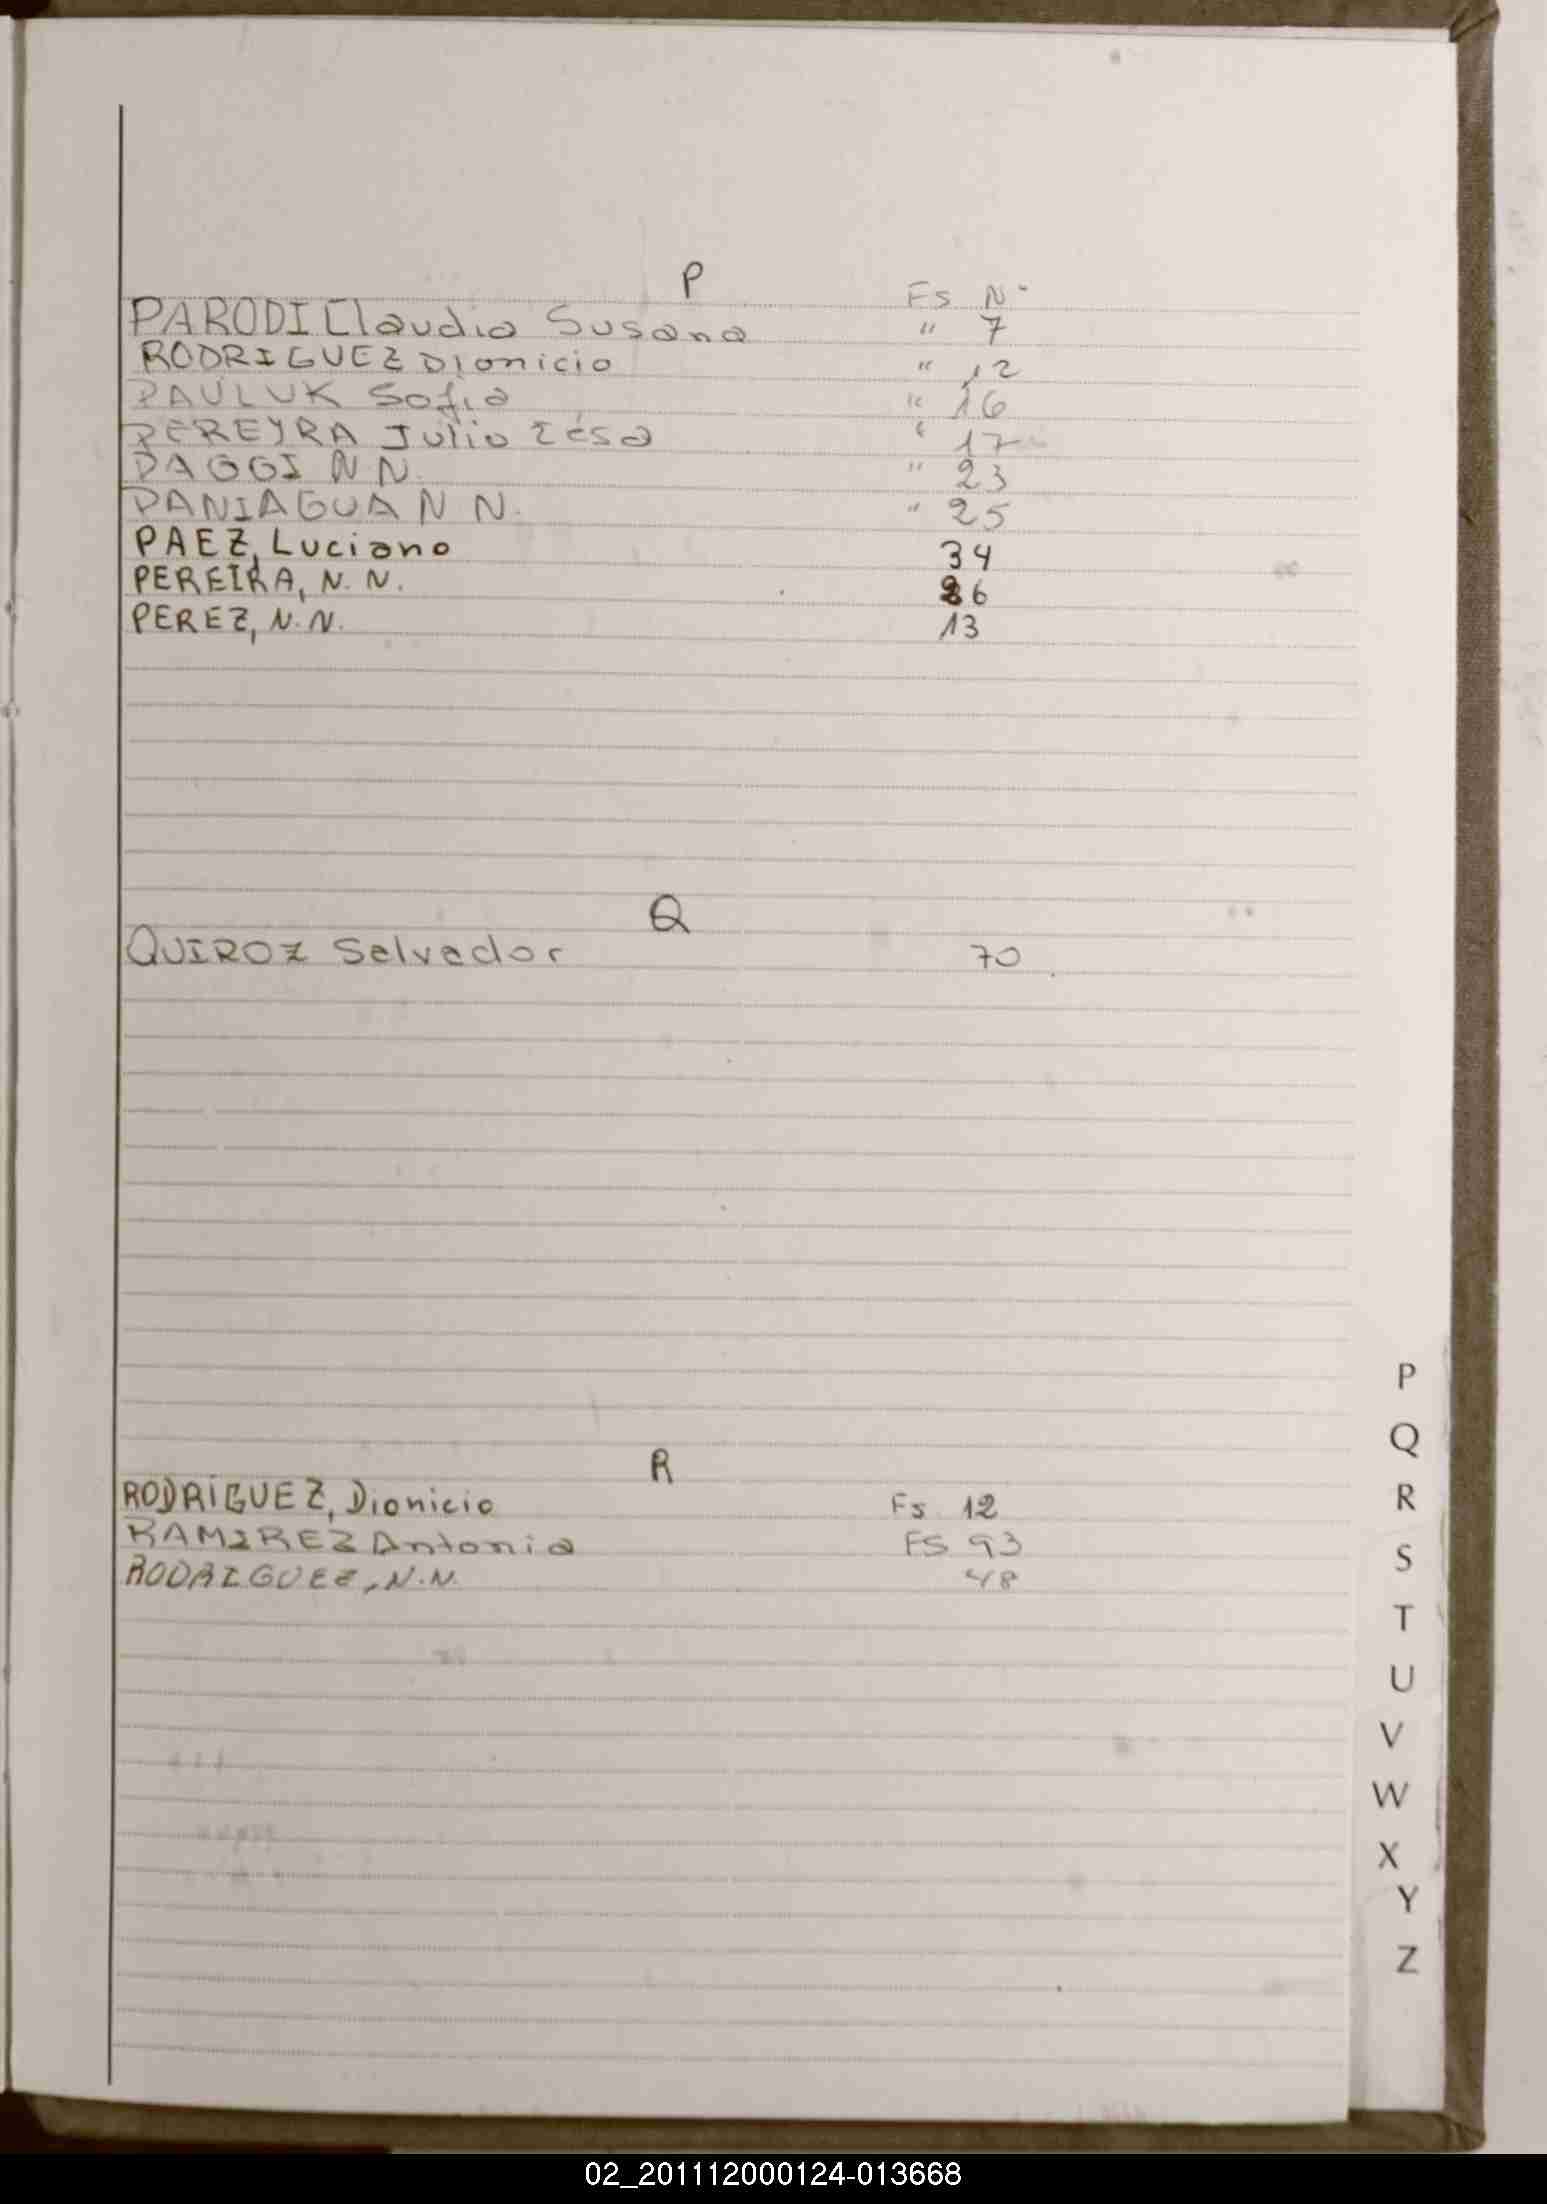 P
Fs N°
PARODI Claudia Susana " 7
RODRIGUEZ Dionicio " 12
PAULUK Sofia " 16
PEREYRA Julio Césa " 17
PAGGI N N. " 23
PANIAGUA N N. " 25
PAEZ, Luciano 34
PEREIRA, N. N. 86
PEREZ, N. N. 13
Q
QUIROZ Salvador 70
R
RODRIGUEZ, Dionicio Fs. 12
RAMIREZ Antonia FS 93
RODRIGUEZ, N.N. 48
P
Q
R
S
T
U
V
W
X
Y
Z
02_201112000124-013668